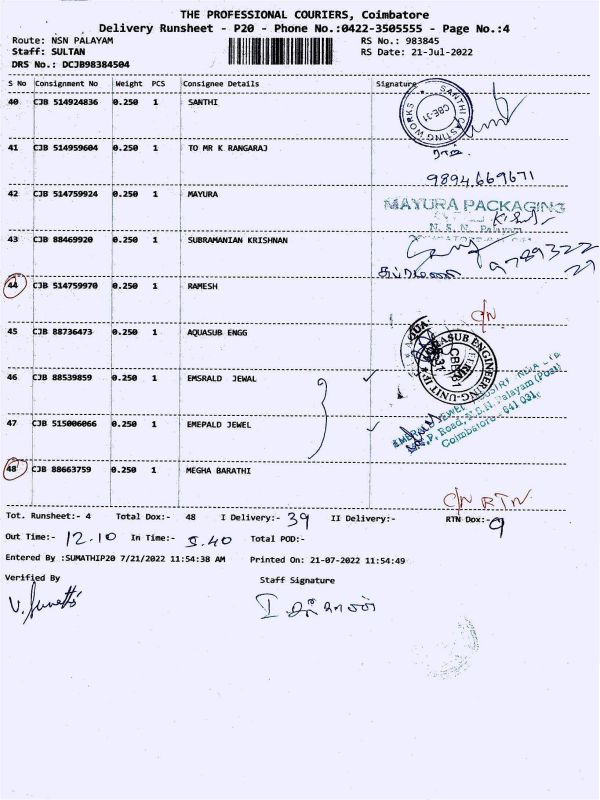 THE PROFESSIONAL COURIERS, Coimbatore
Delivery Runsheet - P20 - Phone No.:0422-3505555 - Page No.:4
Route: NSN PALAYAM RS No.: 983845
Staff: SULTAN RS Date: 21-Jul-2022
DRS No.: DCJB98384504
S No Consignment No Weight PCS Consignee Details Signature
40 CJB 514924836 0.250 1 SANTHI
SANTHI CASTING WORKS CBE-31
41 CJB 514959604 0.250 1 TO MR K RANGARAJ
9894669671
42 CJB 514759924 0.250 1 MAYURA
MAYURA PACKAGING
N. S. N. Palayam
43 CJB 88469920 0.250 1 SUBRAMANIAN KRISHNAN
9789322
27
44 CJB 514759970 0.250 1 RAMESH
C/N
45 CJB 88736473 0.250 1 AQUASUB ENGG
AQUASUB ENGINEERING-UNIT II
46 CJB 88539859 0.250 1 EMSRALD JEWAL
47 CJB 515006066 0.250 1 EMEPALD JEWEL
EMERALD JEWEL INDUSTRY INDIA LTD
Road, N.S.N. Palayam (Post)
Coimbatore - 641 031.
48 CJB 88663759 0.250 1 MEGHA BARATHI
C/N RTN
Tot. Runsheet:- 4 Total Dox:- 48 I Delivery:- 39 II Delivery:- RTN Dox:- 9
Out Time:- 12.10 In Time:- 5.40 Total POD:-
Entered By :SUMATHIP20 7/21/2022 11:54:38 AM Printed On: 21-07-2022 11:54:49
Verified By Staff Signature